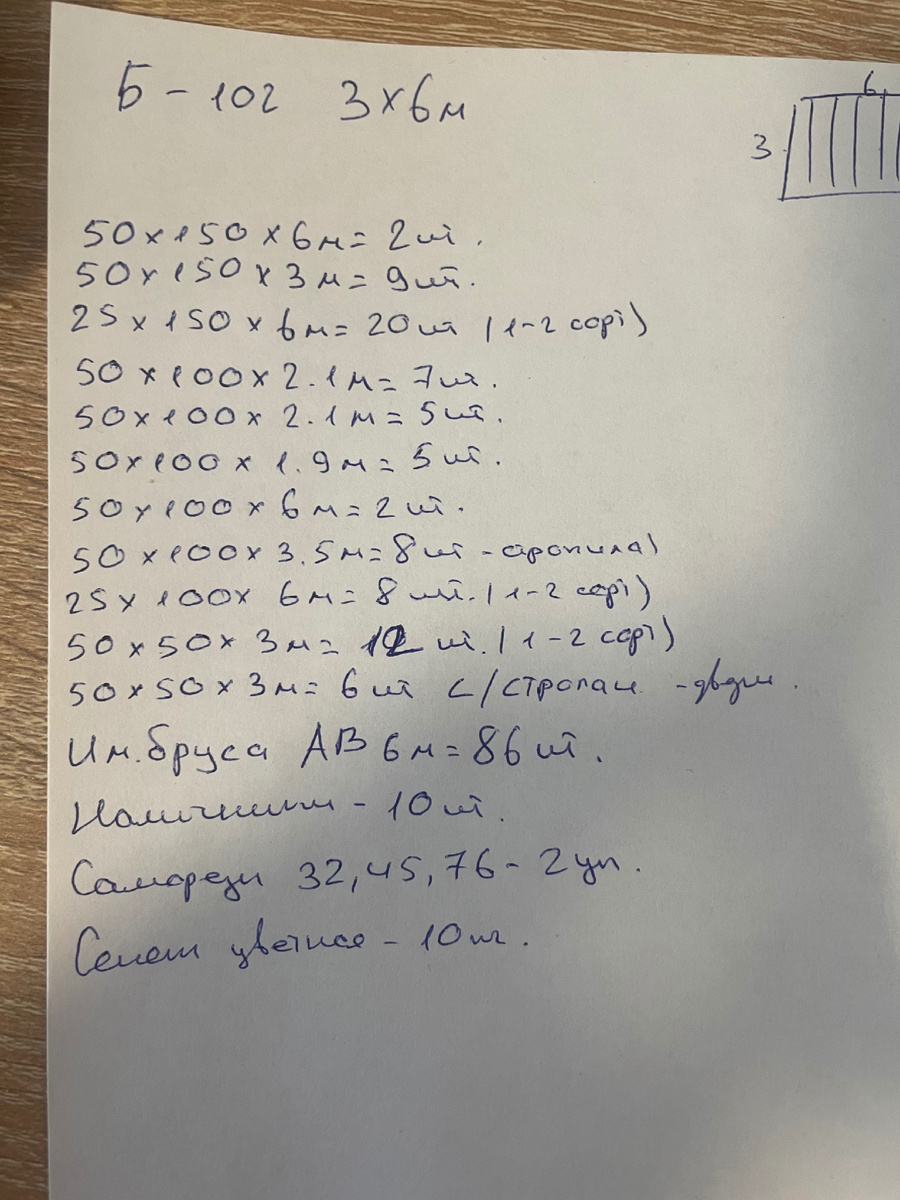 Б - 102 3×6м
6
3
50×150×6м=2шт.
50×150×3м=9шт.
25×150×6м=20шт (1-2 сорт)
50×100×2.1м=7шт.
50×100×2.1м=5шт.
50×100×1.9м=5шт.
50×100×6м=2шт.
50×100×3.5м=8шт - стропила)
25×100×6м=8шт. (1-2 сорт)
50×50×3м=12шт. (1-2 сорт)
50×50×3м=6шт с/строган. -двери.
Им.бруса АВ 6м=86шт.
Наличники - 10шт.
Саморезы 32,45,76 - 2уп.
цветные - 10шт.